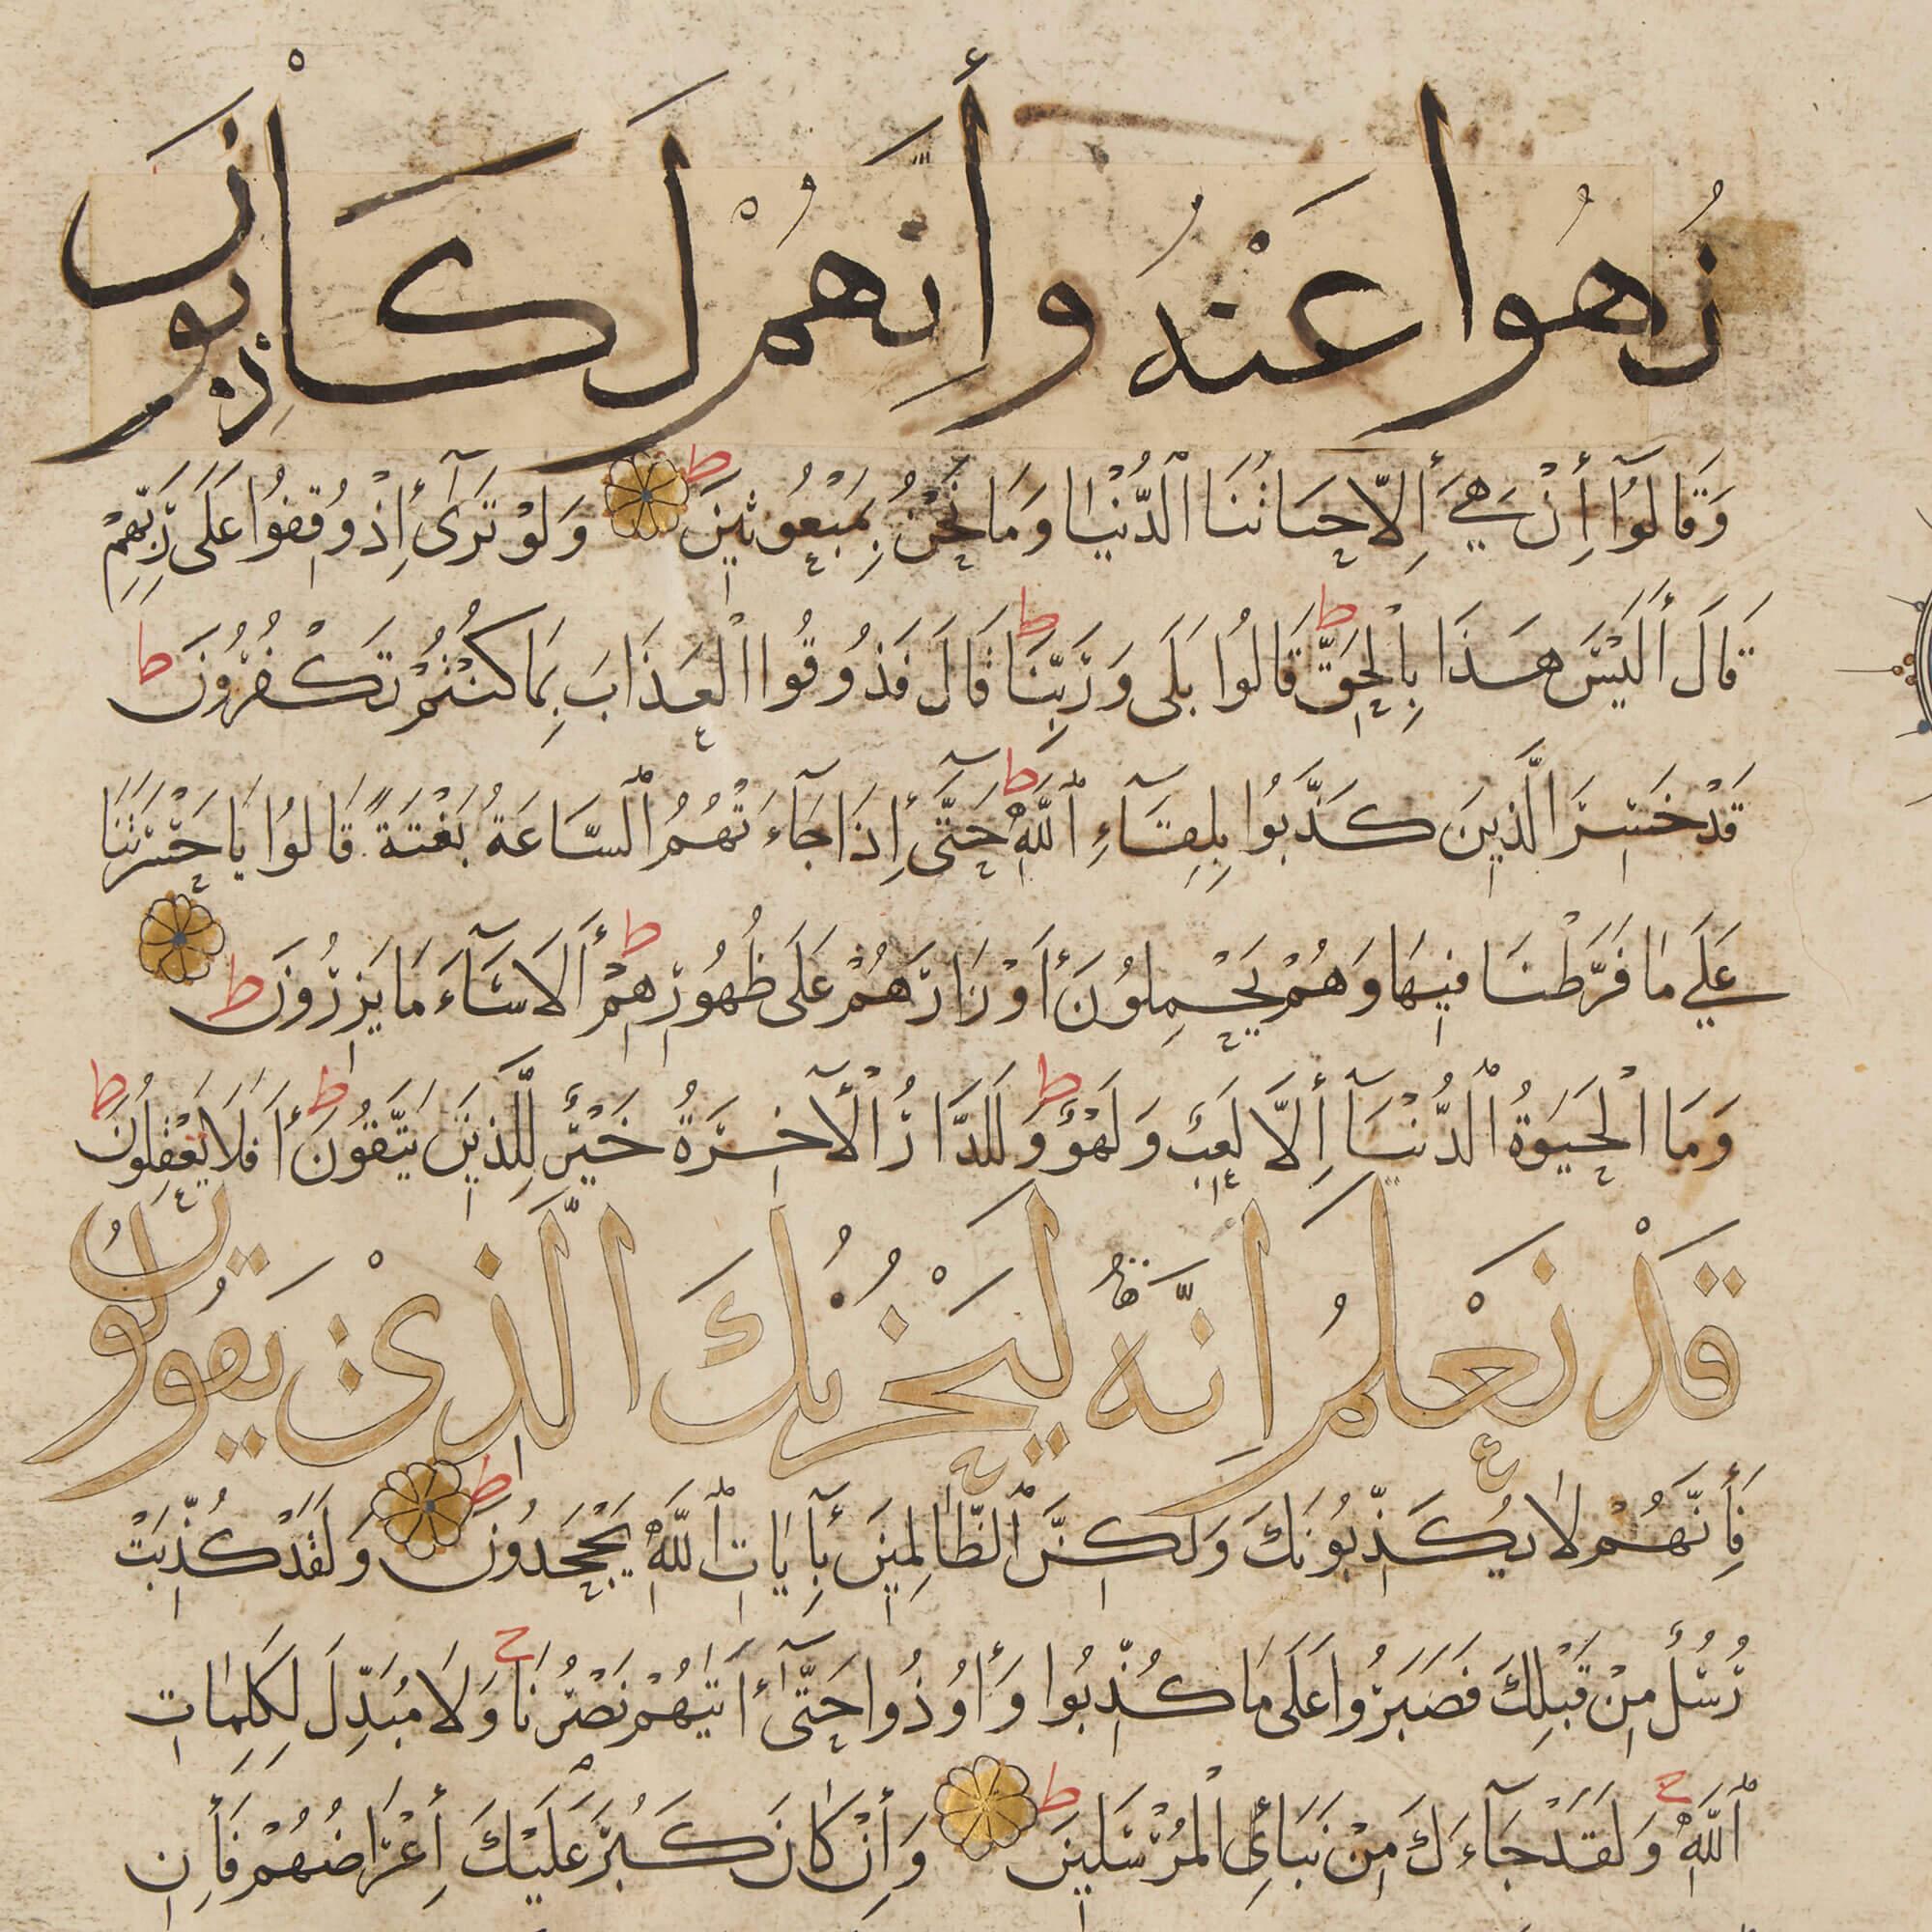 نهوا عنه وأنهم لكاذبون
وَقَالُوٓا۟ أِنْ هِيَ أِلَّا حَيَاتُنَا ٱلدُّنْيَا وَمَا نَحْنُ بِمَبْعُوثِينَ ط وَلَوْ تَرَىٰٓ أِذْ وُقِفُوا عَلَى رَبِّهِمْ
قَالَ أَلَيْسَ هَذَا بِالْحَقِّ ط قَالُوا بَلَى وَرَبِّنَا ط قَالَ فَذُوقُوا الْعَذَابَ بِمَا كُنْتُمْ تَكْفُرُونَ ط
قَدْ خَسِرَ الَّذِينَ كَذَّبُوا بِلِقَآءِ ٱللَّهِ ط حَتَّىٓ أِذَا جَآءَتْهُمُ ٱلسَّاعَةُ بَغْتَةً قَالُوا يَا حَسْرَتَنَا
عَلَي مَا فَرَّطْنَا فِيهَا وَهُمْ يَحْمِلُونَ أَوْزَارَهُمْ عَلَى ظُهُورِهِمْ ط أَلَا سَآءَ مَا يَزِرُونَ ط
وَمَا الْحَيَوٰةُ ٱلدُّنْيَآ أِلَّا لَعِبٌ وَلَهْوٌ ط وَلَلدَّارُ الْآخِرَةُ خَيْرٌ لِلَّذِينَ يَتَّقُونَ ط أَفَلَا يَعْقِلُونَ ط
قَدْ نَعْلَمُ اِنَّهُ لَيَحْزُنُكَ الَّذِىْ يَقُولُونَ
فَأِنَّهُمْ لَا يُكَذِّبُونَكَ وَلَكِنَّ ٱلظَّالِمِينَ بِآيَاتِ ٱللَّهِ يَجْحَدُونَ ط وَلَقَدْ كُذِّبَتْ
رُسُلٌ مِنْ قَبْلِكَ فَصَبَرُوا عَلَى مَا كُذِّبُوا وَأُوذُوا حَتَّىٓ أَتَيٰهُمْ نَصْرُنَا ح وَلَا مُبَدِّلَ لِكَلِمَاتِ
ٱللَّهِ ح وَلَقَدْ جَآءَكَ مِنْ نَبَأِى الْمُرْسَلِينَ ط وَأِنْ كَانَ كَبُرَ عَلَيْكَ أِعْرَاضُهُمْ فَأِنِ